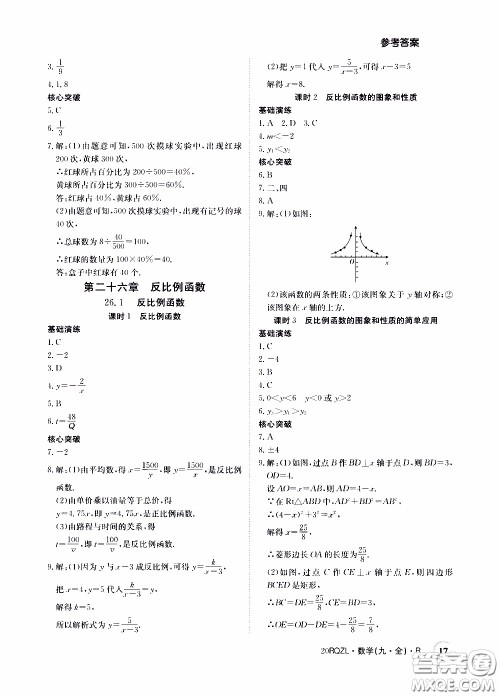 参考答案
3. 1/9
4. 1.8
核心突破
5. C
6. 1/3
7. 解:(1)由题意可知,500次摸球实验中,出现红球
200次,黄球300次,
∴红球所占百分比为200÷500=40%,
黄球所占百分比为300÷500=60%,
答:红球占40%,黄球占60%.
(2)由题意可知,500次摸球实验中,出现有记号的球
40次,
∴总球数为8÷40/500=100,
∴红球的数量为100×40%=40.
答:盒子中红球有40个.
第二十六章 反比例函数
26.1 反比例函数
课时1 反比例函数
基础演练
1. C
2. -2
3. D
4. y=-2/x
5. C
6. t=48/Q
核心突破
7. -2
8. 解:(1)由平均数,得x=1500/y,即y=1500/x,是反比例
函数.
(2)由单价乘以油量等于总价,得
y=4.75x,即y=4.75x,是正比例函数.
(3)由路程与时间的关系,得
t=100/v,即t=100/v,是反比例函数.
9. 解:(1)因为y与x-3成反比例,可得y=k/(x-3),
把x=4,y=5代入k/(x-3)=y,
解得k=5,
所以解析式为y=5/(x-3).
(2)把y=1代入y=5/(x-3),可得x-3=5
解得x=8.
课时2 反比例函数的图象和性质
基础演练
1. A 2. D 3. C
4. m<-2
5. y₁<y₂
核心突破
6. B
7. 二、四
8. A
9. 解:(1)如图:
O x
(2)该函数的两条性质:①该图象关于y轴对称;②该
图象在x轴的上方.
课时3 反比例函数的图象和性质的简单应用
基础演练
1. C
2. -4
3. B
4. B
5. 0<x<6 y<0或y>2
6. y₂>y₁>y₃
核心突破
7. A
8. ±4
9. 解:(1)如图,过点B作BD⊥x轴于点D,则BD=3,
OD=4.
设AO=x=AB,则AD=4-x.
∵在Rt△ABD中,AD²+BD²=AB²,
∴(4-x)²+3²=x².
解得x=25/8.
∴菱形边长OA的长度为25/8.
(2)如图,过点C作CE⊥x轴于点E,则四边形
BCED是矩形.
∴BC=DE=25/8
∴OE=OD-DE=4-25/8=7/8.
20RQZL·数学(九·全)·R 17